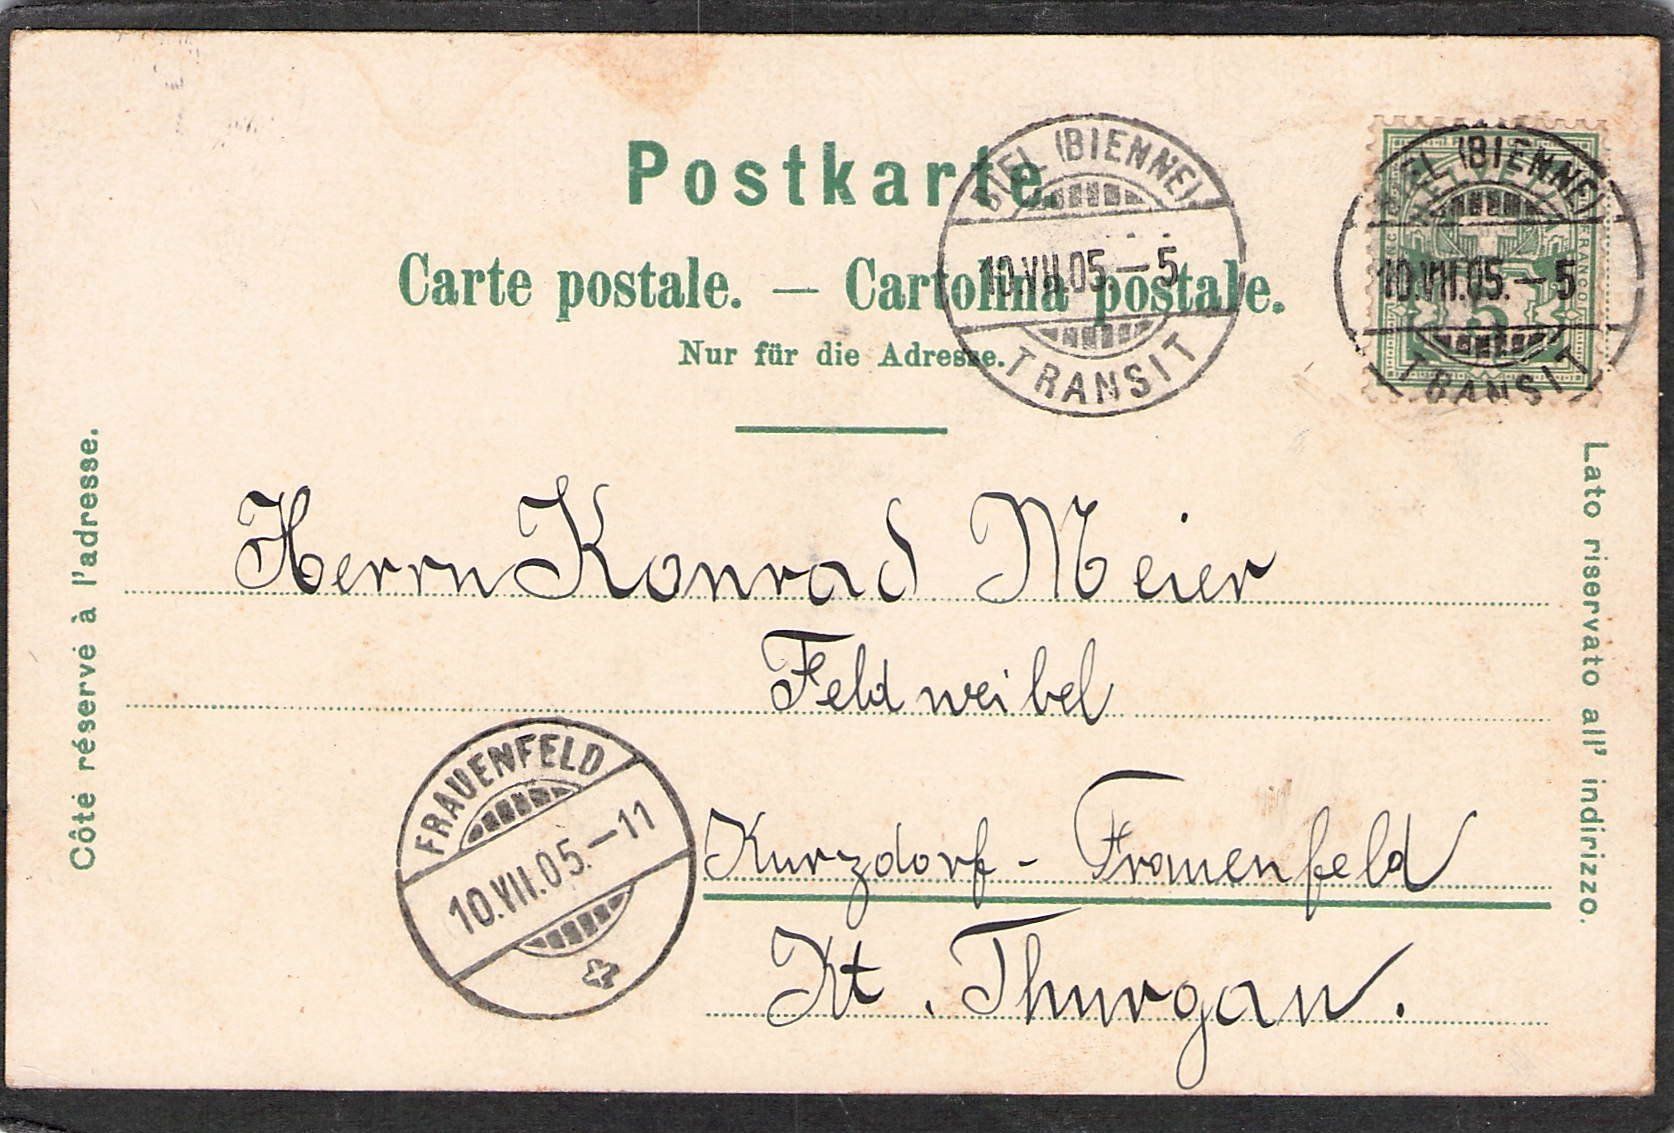 Postkarte.
Carte postale. — Cartolina postale.
Nur für die Adresse.
BIEL (BIENNE)
10.VII.05.-5
TRANSIT
BIEL (BIENNE)
10.VII.05.-5
TRANSIT
HELVETIA
FRANCO
5
Côté réservé à l'adresse.
Lato riservato all' indirizzo.
Herrn Konrad Meier
Feldweibel
Kurzdorf - Frauenfeld
Kt. Thurgau.
FRAUENFELD
10.VII.05.-11